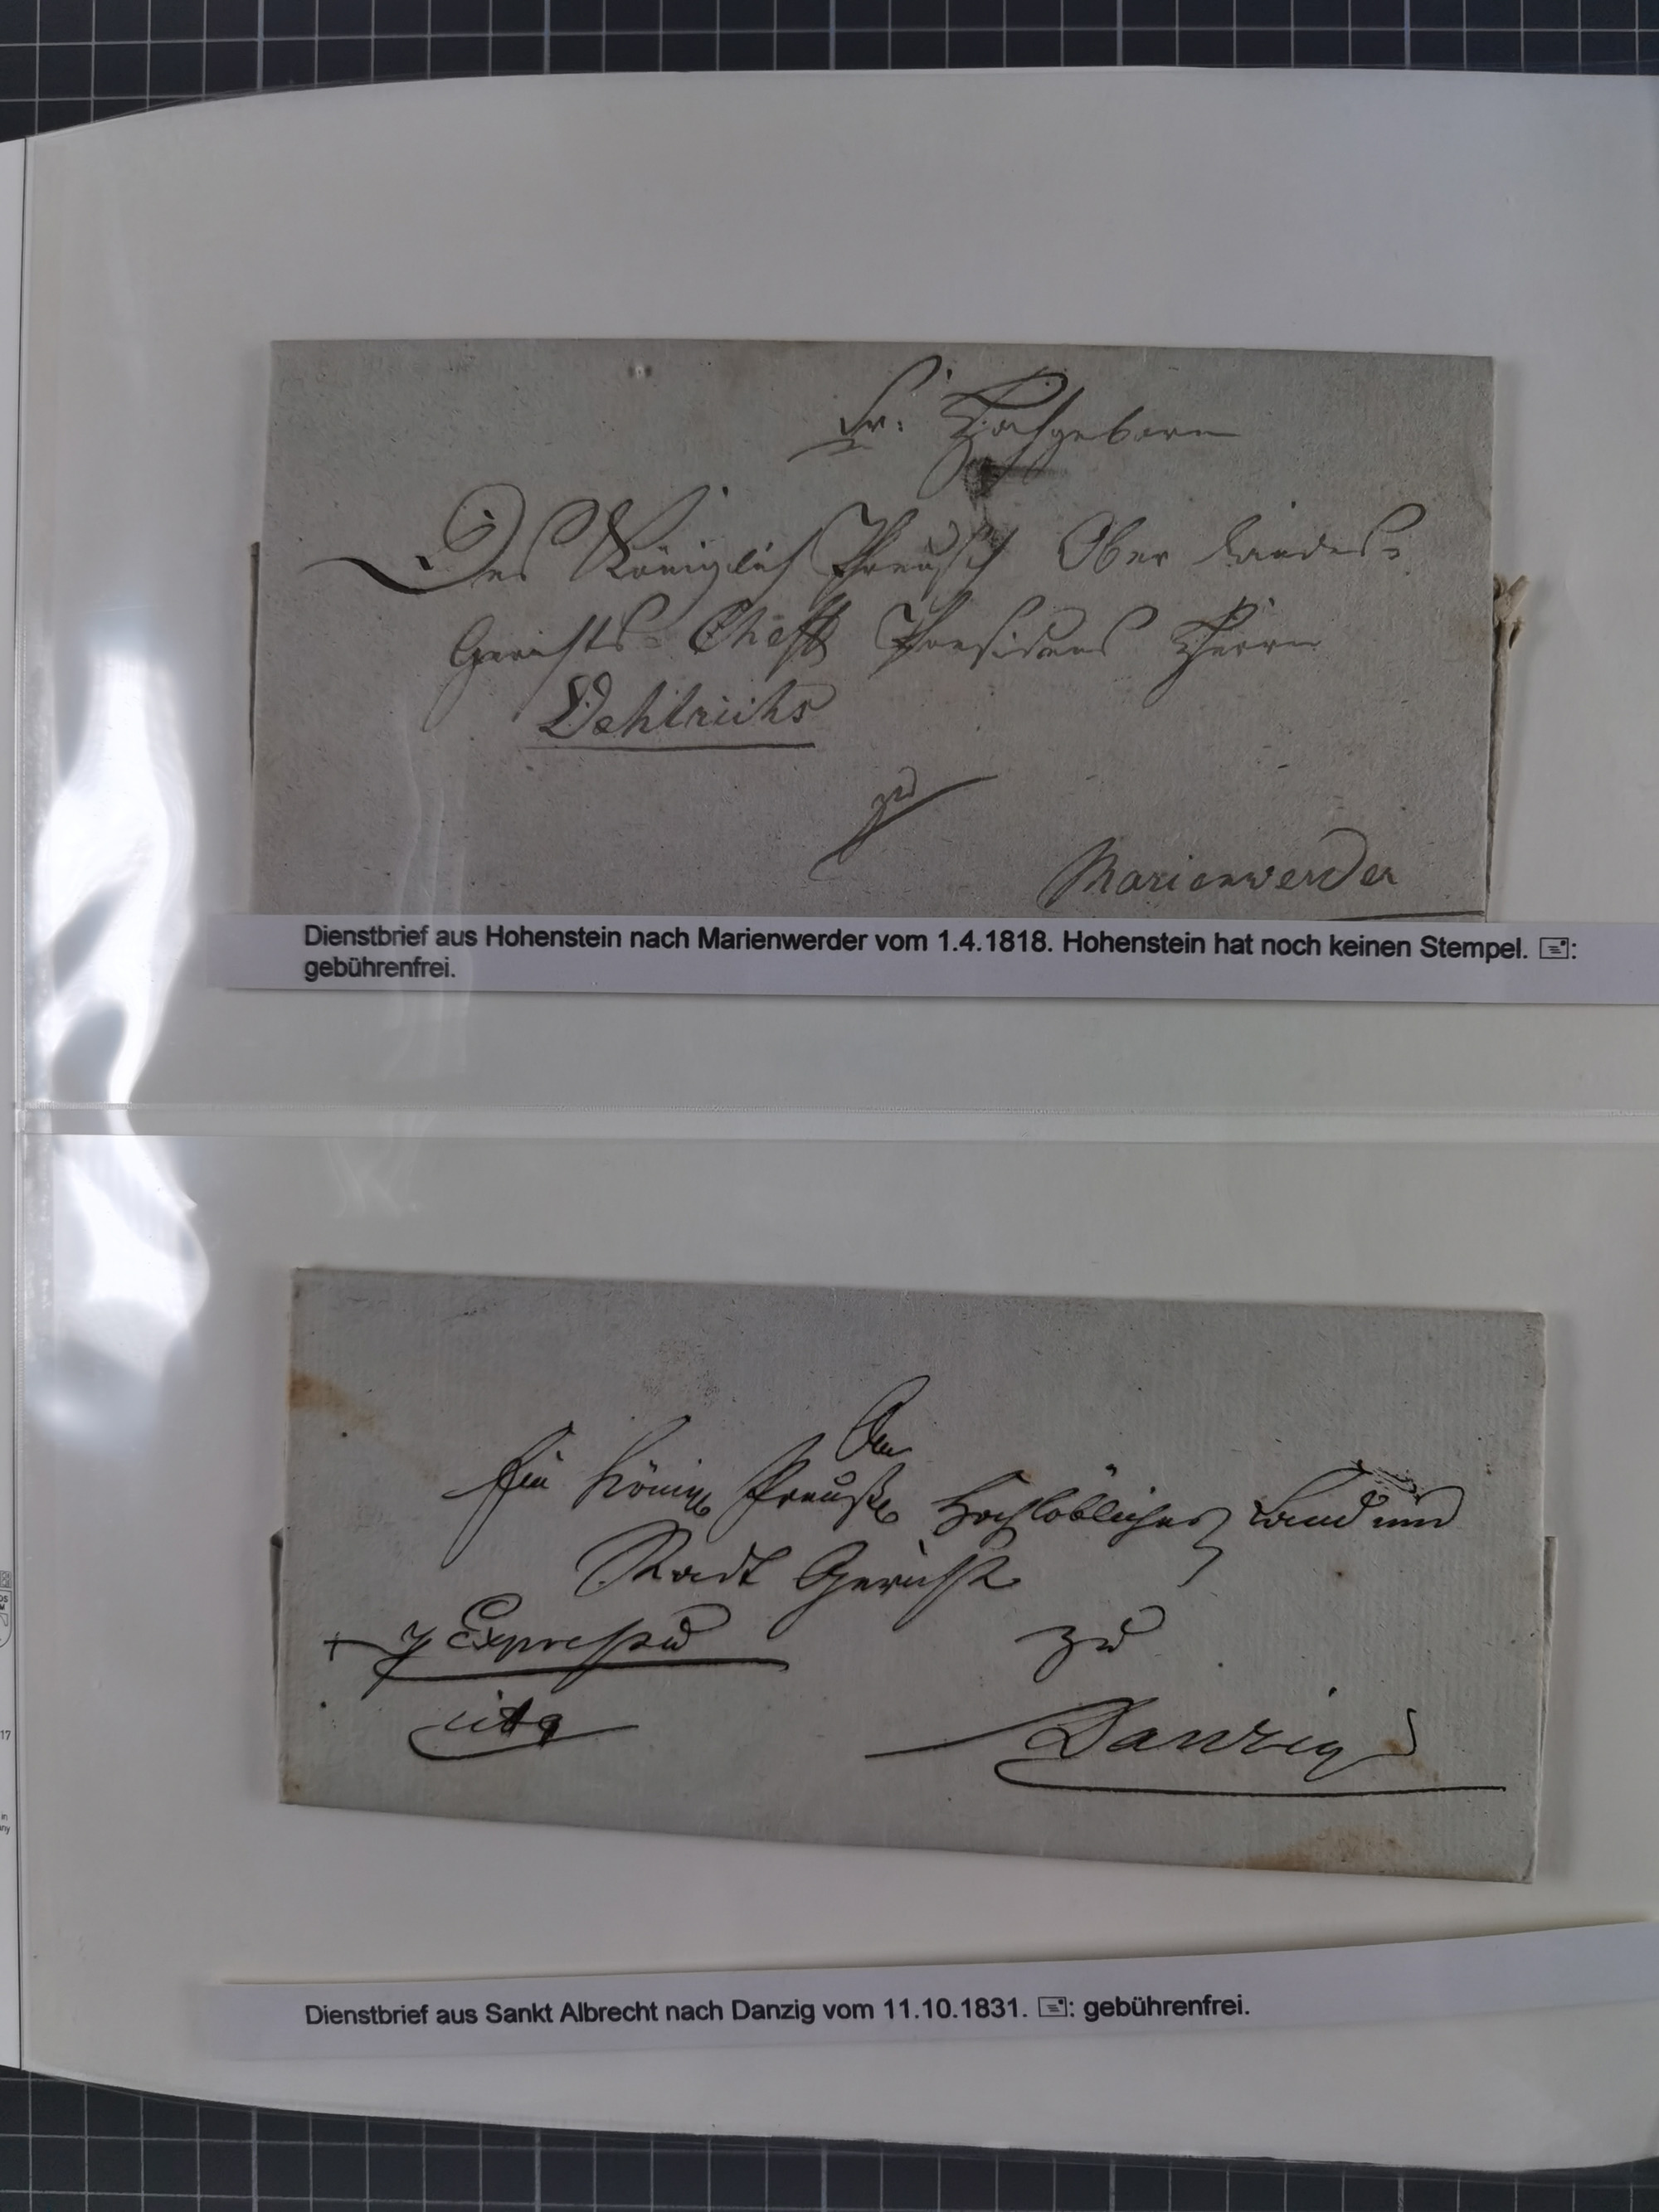 Sr: Hochgeborn
Des Königlich Preußisch Ober Landes-
Gerichts- Cheff Praesident Herrn
zu
Marienwerder
Dienstbrief aus Hohenstein nach Marienwerder vom 1.4.1818. Hohenstein hat noch keinen Stempel. 🖃:
gebührenfrei.
An
Ein Königl Preußl Hochlöbliches Land und
Stadt Gericht
Expressen
zu
cito
Danzig
17
in
Dienstbrief aus Sankt Albrecht nach Danzig vom 11.10.1831. 🖃: gebührenfrei.